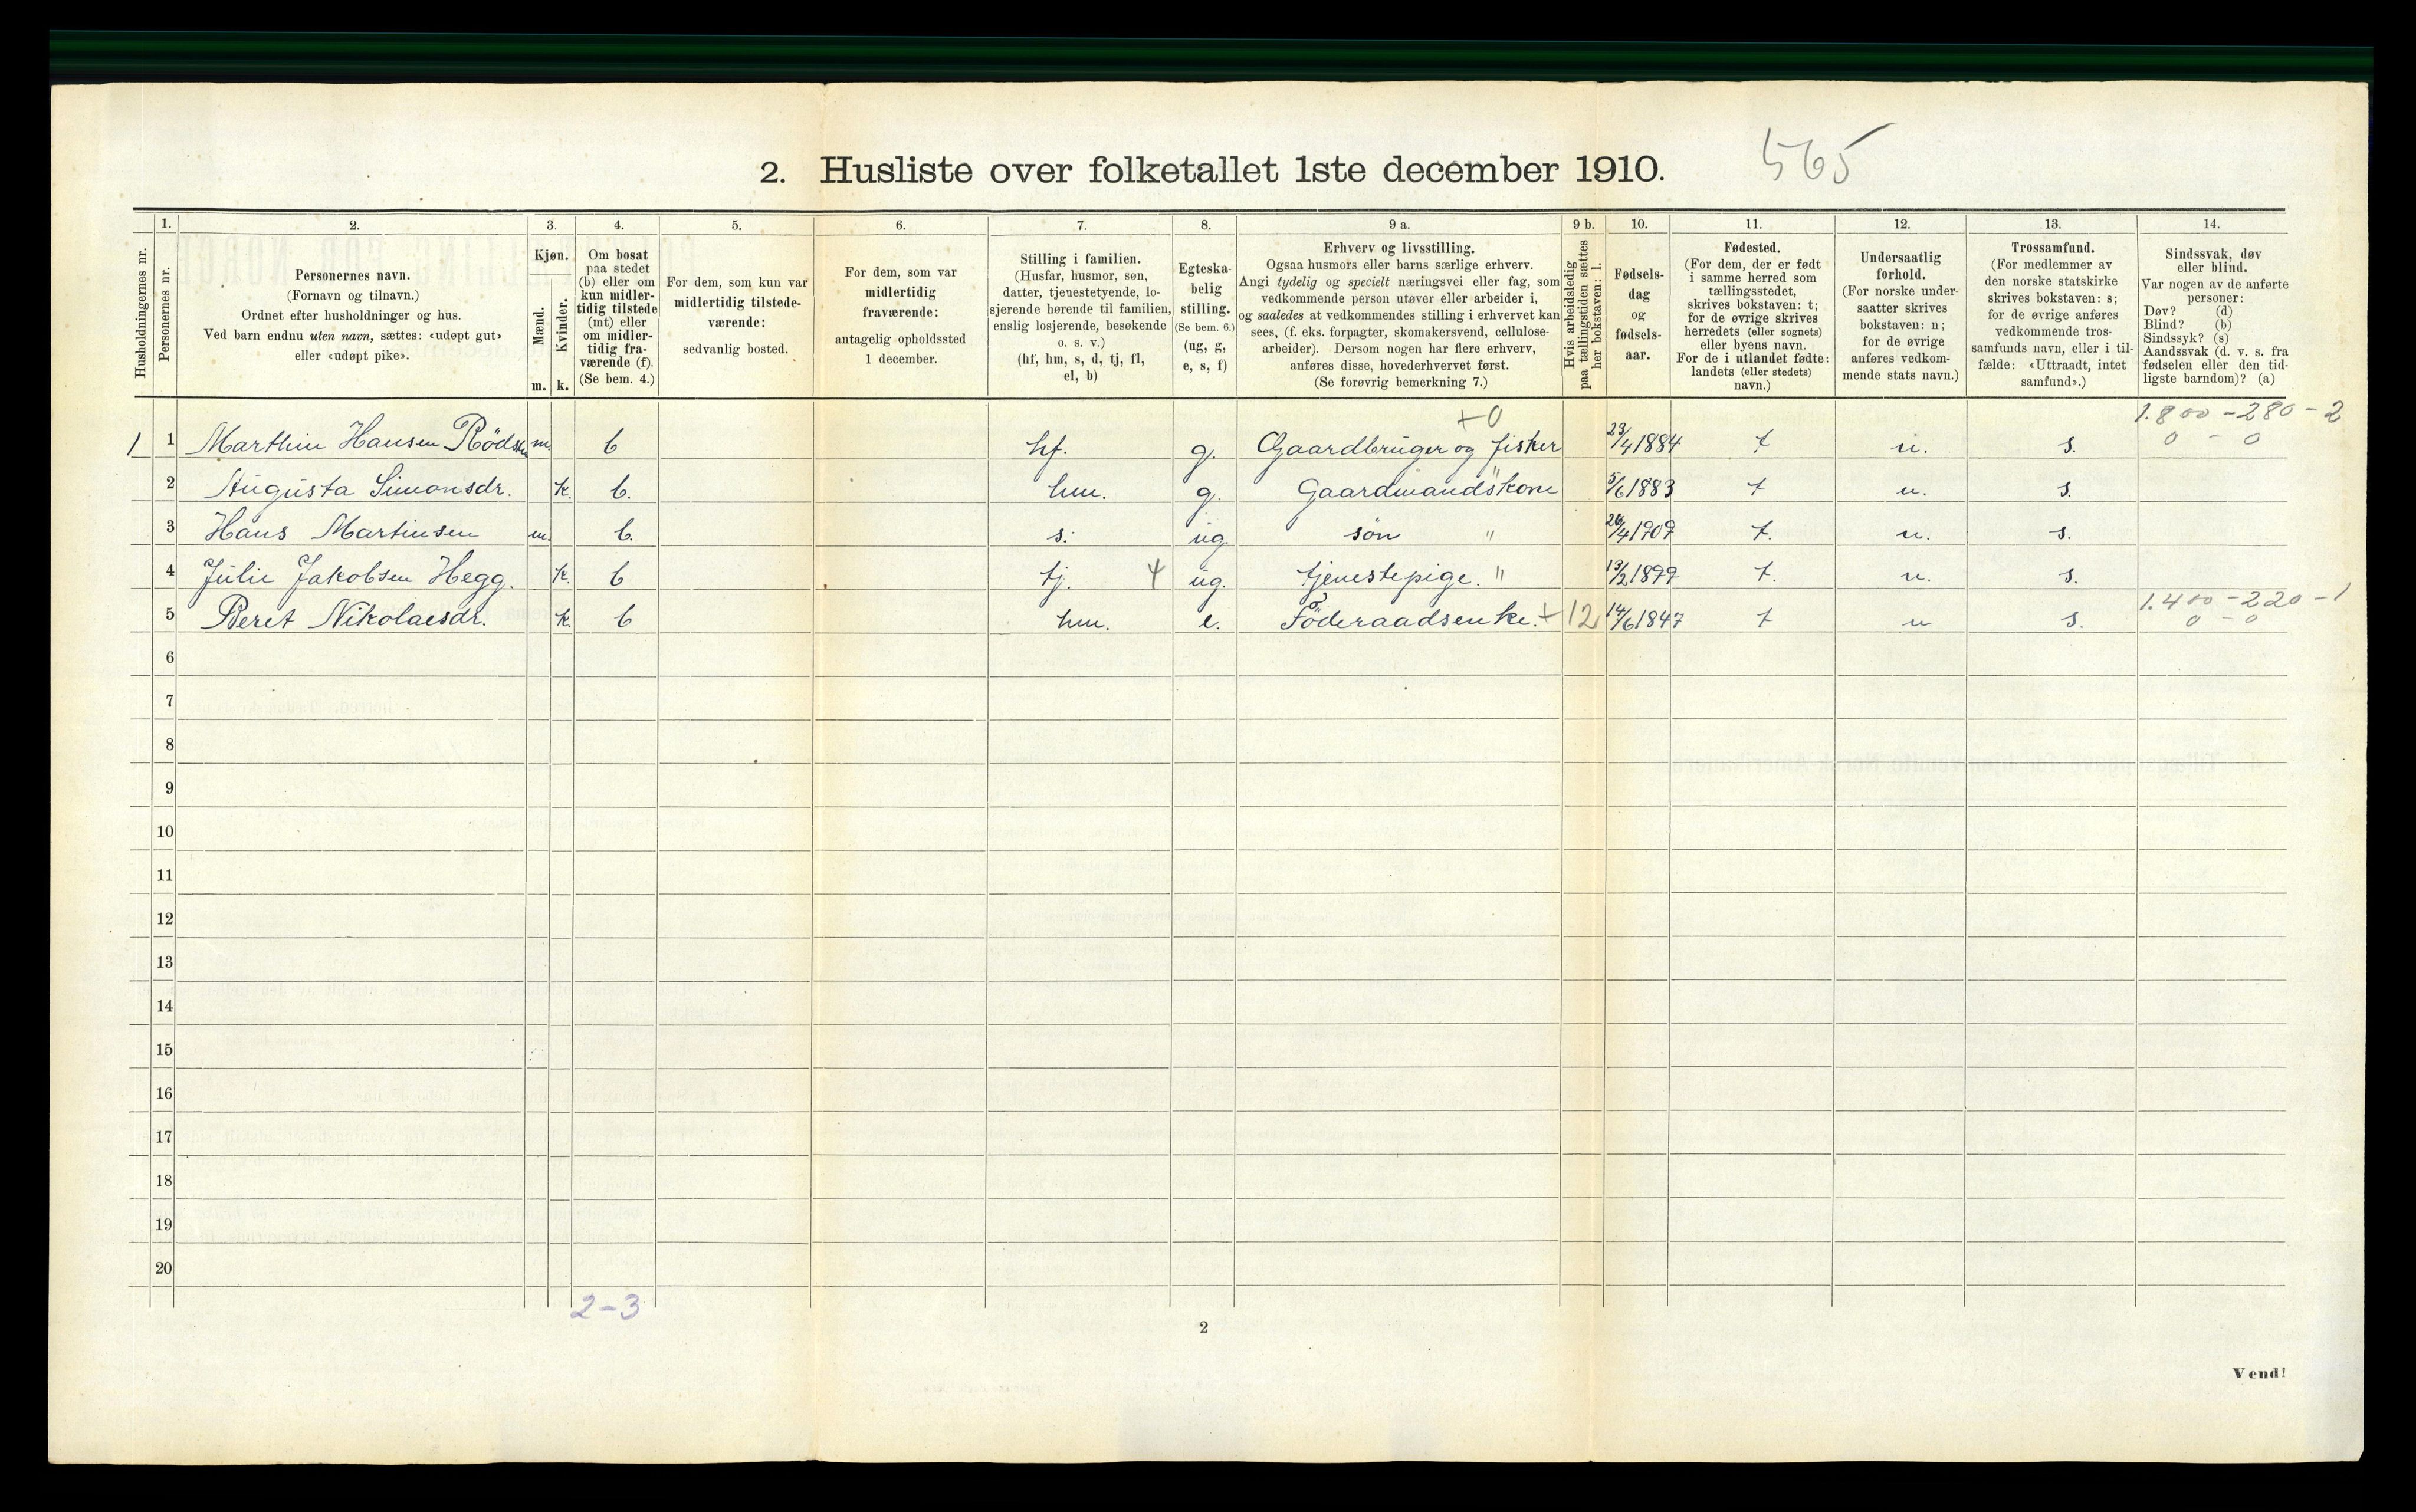 2. Husliste over folketallet 1ste december 1910. 565
1. 2. 3. 4. 5. 6. 7. 8. 9 a. 9 b. 10. 11. 12. 13. 14.
Husholdningernes nr.
Personernes nr.
Personernes navn.
(Fornavn og tilnavn.)
Ordnet efter husholdninger og hus.
Ved barn endnu uten navn, sættes: «udøpt gut»
eller «udøpt pike».
Kjøn.
Mænd.
Kvinder.
m. k.
Om bosat
paa stedet
(b) eller om
kun midler-
tidig tilstede
(mt) eller
om midler-
tidig fra-
værende (f).
(Se bem. 4.)
For dem, som kun var
midlertidig tilstede-
værende:
sedvanlig bosted.
For dem, som var
midlertidig
fraværende:
antagelig opholdssted
1 december.
Stilling i familien.
(Husfar, husmor, søn,
datter, tjenestetyende, lo-
sjerende hørende til familien,
enslig losjerende, besøkende
o. s. v.)
(hf, hm, s, d, tj, fl,
el, b)
Egteska-
belig
stilling.
(Se bem. 6.)
(ug, g,
e, s, f)
Erhverv og livsstilling.
Ogsaa husmors eller barns særlige erhverv.
Angi tydelig og specielt næringsvei eller fag, som
vedkommende person utøver eller arbeider i,
og saaledes at vedkommendes stilling i erhvervet kan
sees, (f. eks. forpagter, skomakersvend, cellulose-
arbeider). Dersom nogen har flere erhverv,
anføres disse, hovederhvervet først.
(Se forøvrig bemerkning 7.)
Hvis arbeidsledig
paa tællingstiden sættes
her bokstaven: l.
Fødsels-
dag
og
fødsels-
aar.
Fødested.
(For dem, der er født
i samme herred som
tællingsstedet,
skrives bokstaven: t;
for de øvrige skrives
herredets (eller sognets)
eller byens navn.
For de i utlandet fødte:
landets (eller stedets)
navn.)
Undersaatlig
forhold.
(For norske under-
saatter skrives
bokstaven: n;
for de øvrige
anføres vedkom-
mende stats navn.)
Trossamfund.
(For medlemmer av
den norske statskirke
skrives bokstaven: s;
for de øvrige anføres
vedkommende tros-
samfunds navn, eller i til-
fælde: «Uttraadt, intet
samfund».)
Sindssvak, døv
eller blind.
Var nogen av de anførte
personer:
Døv? (d)
Blind? (b)
Sindssyk? (s)
Aandssvak (d. v. s. fra
fødselen eller den tid-
ligste barndom)? (a)
+0 1.800 - 280 - 2
1 1 Marthin Hansen Rödsen m. b hf. g. Gaardbruger og fisker 23/4 1884 t n. s. 0 - 0
2 Augusta Simonsdr. k. b. hm. g. Gaardmandskone " 5/6 1883 t n. s.
3 Hans Martinsen m. b. s. ug. søn " 26/4 1909 t. n. s.
4 Julie Jakobsen Hegg. k. b tj. 4 ug. tjenestepige. " 13/2 1899 t. n. s.
1.400 - 220 - 1
5 Beret Nikolaesdr. k. b hm. e. Föderaadsenke. + 12 14/6 1847 t n s. 0 - 0
6
7
8
9
10
11
12
13
14
15
16
17
18
19
20
2-3
2
Vend!